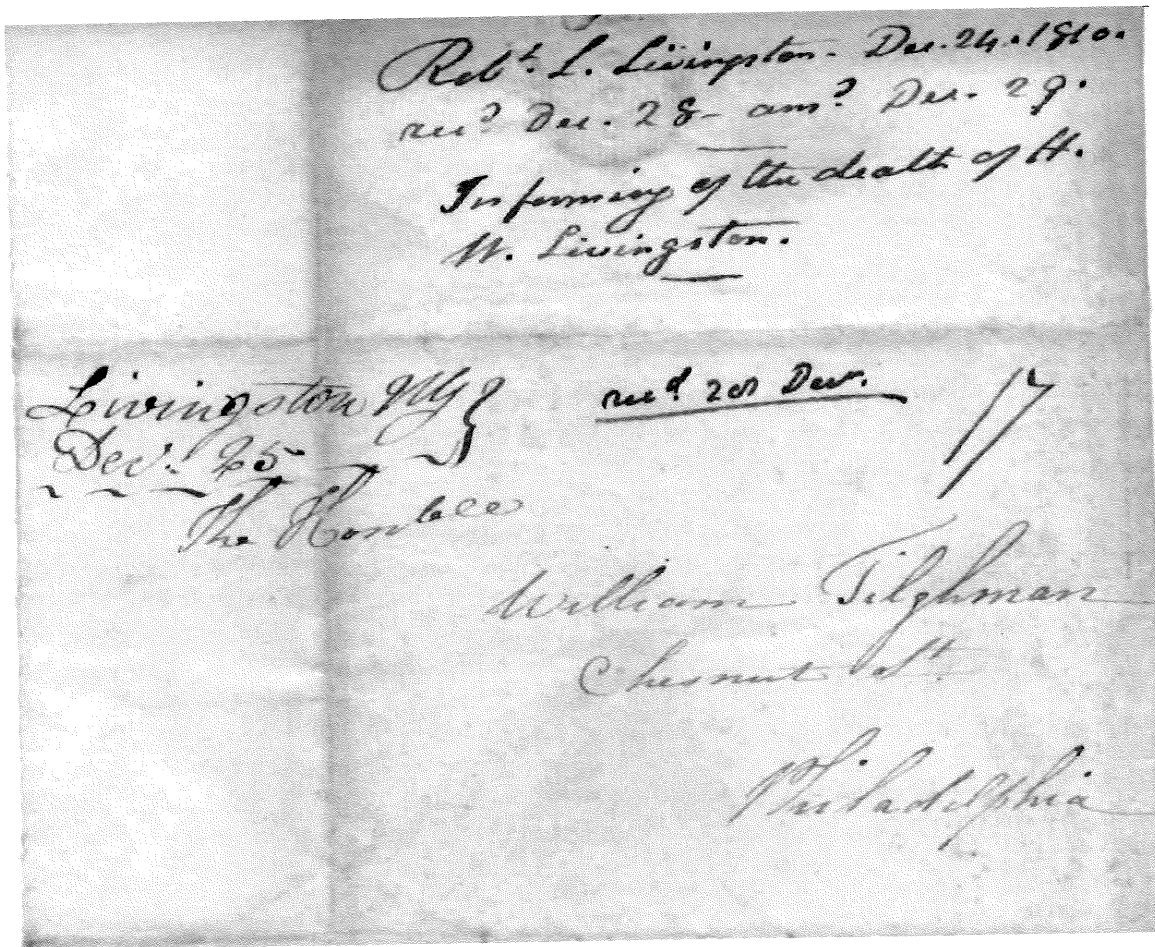 Robt. L. Livingston - Dec. 24. 1810.
recd Dec. 28 - ansd Dec. 29.
Informing of the death of H.
W. Livingston.
Livingston NY
Decr. 25
recd 28 Decr.
17
The Honble
William Tilghman
Chesnut St.
Philadelphia